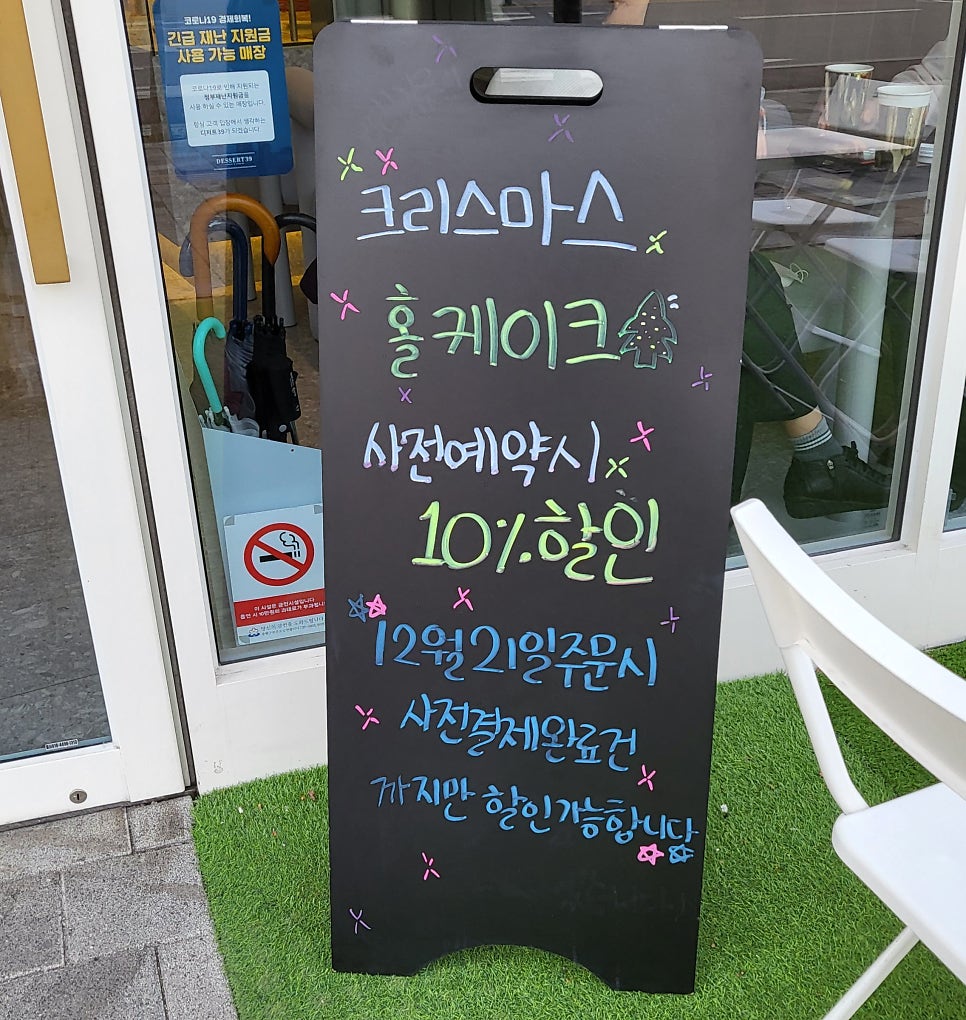 코로나19 경제회복!
긴급 재난 지원금
사용 가능 매장
코로나19로 인해 지원되는
정부재난지원금을
사용 하실 수 있는 매장입니다.
항상 고객 입장에서 생각하는
디저트39가 되겠습니다.
DESSERT39
크리스마스
홀케이크
사전예약시
10% 할인
12월 21일 주문시
사전결제완료건
까지만 할인가능합니다
이 시설은 금연시설입니다